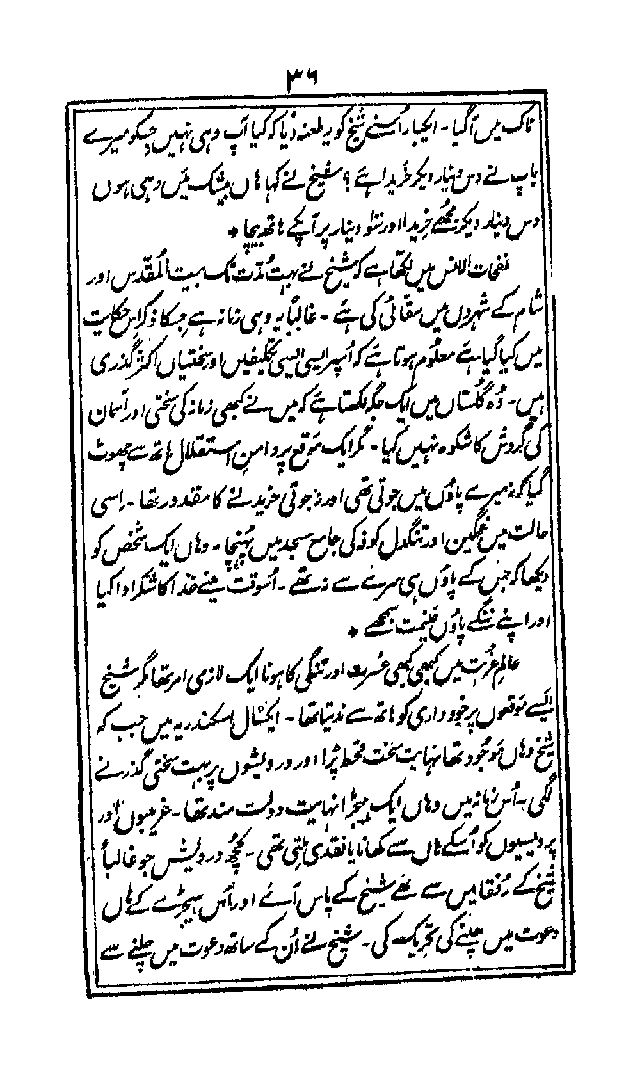 ۳۶
ناک میں آگیا۔ ایکبار اُسنے شیخ کو یہ طعنہ دیا کہ کیا آپ وہی نہیں جسکو میرے
باپ نے دس دینار دیکر خریدا ہے؟ شیخ نے کہا ہاں بیشک میں وہی ہوں
دس دینار دیکر مجھے خریدا اور سو دینار پر آپکے ہاتھ بیچا ٭
نفحات الانس میں لکھا ہے کہ شیخ نے بہت مُدّت تک بیت المقدس اور
شام کے شہروں میں سقائی کی ہے۔ غالباً یہ وہی زمانہ ہے جسکا ذکر اِس حکایت
میں کیا گیا ہے معلوم ہوتا ہے کہ اُسپر ایسی ایسی تکلیفیں اور سختیاں اکثر گذری
ہیں۔ وُہ گلستاں میں ایک جگہ لکھتا ہے کہ میں نے کبھی زمانہ کی سختی اور آسمان
کی گردش کا شکوہ نہیں کیا۔ مگر ایک موقع پر دامنِ استقلال ہاتھ سے چھوٹ
گیا کہ نہ میرے پاؤں میں جوتی تھی اور نہ جوتی خریدنے کا مقدور تھا۔ اِسی
حالت میں غمگین اور تنگدل کوفہ کی جامع مسجد میں پُہنچا۔ وہاں ایک شخص کو
دیکھا کہ جس کے پاؤں ہی سرے سے نہ تھے۔ اُسوقت مینے خدا کا شکر ادا کیا
اور اپنے ننگے پاؤں غنیمت سمجھے ٭
عالمِ غربت میں کبھی کبھی عُسرت اور تنگی کا ہونا ایک لازمی امر تھا مگر شیخ
ایسے موقعوں پر خود داری کو ہاتھ سے ندیتا تھا۔ ایکسال اسکندریہ میں جب کہ
شیخ وہاں موجود تھا نہایت سخت قحط پڑا اور درویشوں پر بہت سختی گذرنے
لگی۔ اُس زمانہ میں وہاں ایک ہیجڑا نہایت دولت مند تھا۔ غریبوں اور
پردیسیوں کو اُسکے ہاں سے کھانا یا نقدی ملتی تھی۔ کچھ درویش جو غالباً
شیخ کے رُفقا میں سے تھے شیخ کے پاس آئے اور اُس ہیجڑے کے ہاں
دعوت میں چلنے کی تحریک کی۔ شیخ نے اُن کے ساتھ دعوت میں چلنے سے